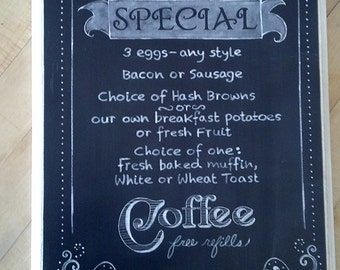 SPECIAL
3 eggs-any style
Bacon or Sausage
Choice of Hash Browns
or
our own breakfast potatoes
or fresh Fruit
Choice of one:
fresh baked muffin,
White or Wheat Toast
Coffee
free refills